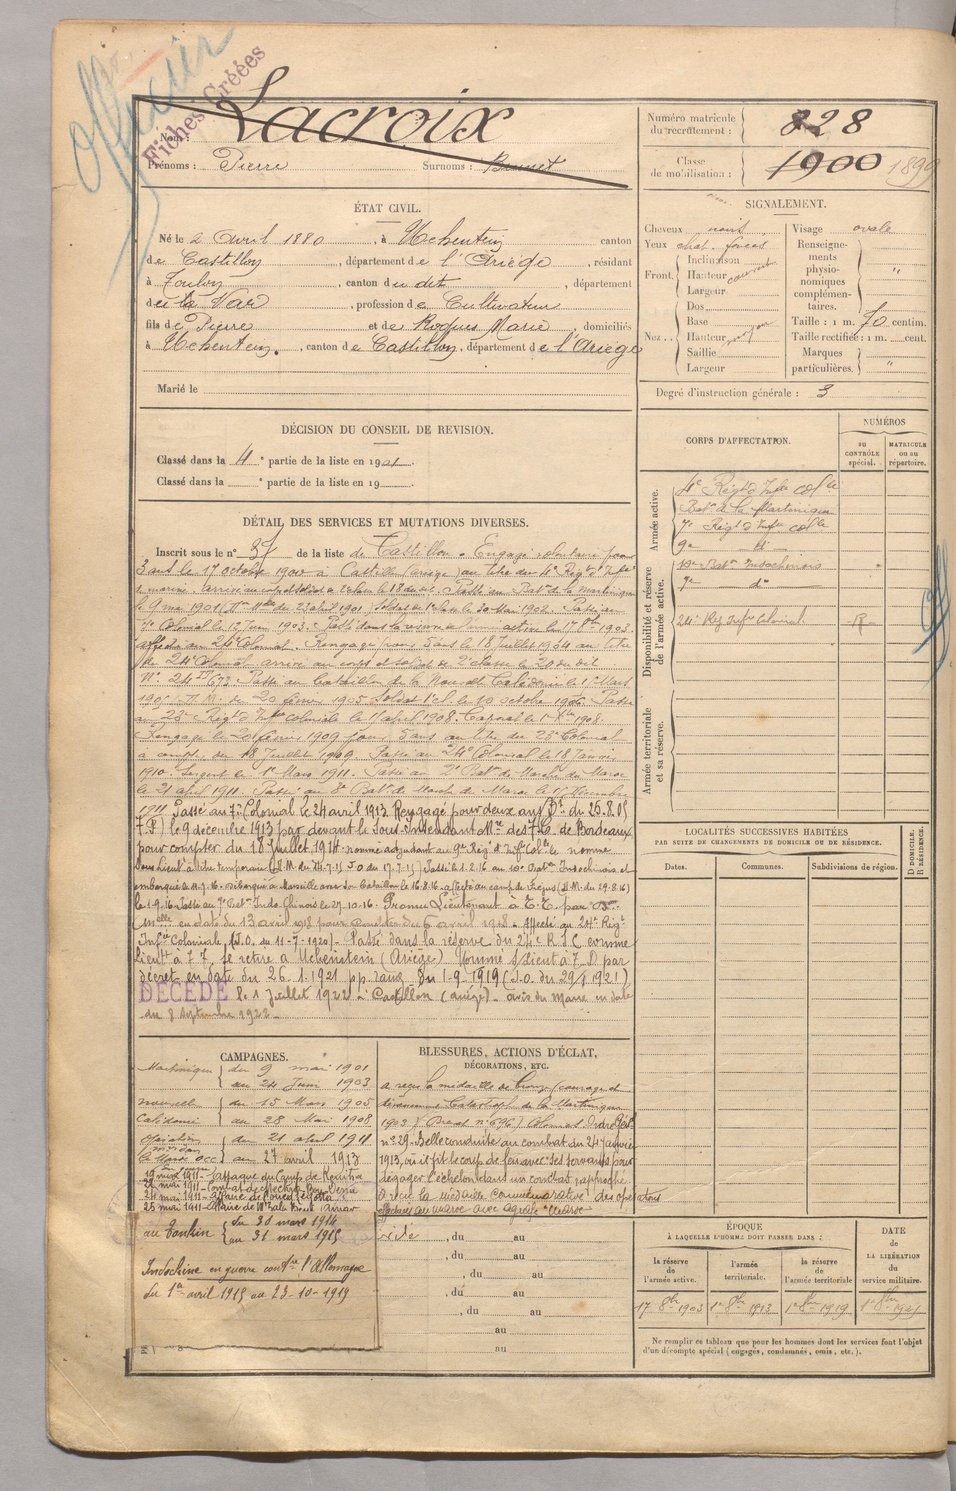 Officier
Fiches Créées
Nom : Lacroix
Prénoms : Pierre Surnoms :
Numéro matricule du recrutement : 828
Classe de mobilisation : 1900 1899
ÉTAT CIVIL.
Né le 2 avril 1880, à Uchentein canton
de Castillon, département de l'Ariège, résidant
à Toulon, canton du dit, département
du Var, profession de Cultivateur
fils de Pierre et de Roques Marie, domiciliés
à Uchentein, canton de Castillon, département de l'Ariège
Marié le
SIGNALEMENT.
Cheveux noirs
Yeux chat. foncés
Front.
Inclinaison
Hauteur
Largeur
Nez ..
Dos
Base
Hauteur
Saillie
Largeur
Visage ovale
Renseignements physionomiques complémentaires. "
Taille : 1 m. 70 centim.
Taille rectifiée : 1 m. cent.
Marques particulières. "
Degré d'instruction générale : 3
DÉCISION DU CONSEIL DE REVISION.
Classé dans la 4e partie de la liste en 1901.
Classé dans la e partie de la liste en 19
CORPS D'AFFECTATION.
NUMÉROS
AU CONTRÔLE spécial.
MATRICULE ou au répertoire.
Armée active.
4e Régt d'Infie colle
Baton de la Martinique
7e Régt d'Infie colle
9e - di -
Disponibilité et réserve de l'armée active.
10e Baton Indochinois
7e do
24e Rég Infie Colonial
Armée territoriale et sa réserve.
DÉTAIL DES SERVICES ET MUTATIONS DIVERSES.
Inscrit sous le n° 37 de la liste de Castillon. Engagé volontaire pour
3 ans le 17 octobre 1900 à Castillon (ariège) au titre du 4e Régt d'Infie
de marine, arrivé au corps et soldat de 2e classe le 18 du dit. Passé au Baton de la Martinique
le 9 mai 1901 (23 avril 1901) Soldat de 1e classe le 30 Mai 1902. Passé au
7e Colonial le 12 Juin 1903. Passé dans la réserve de l'armée active le 17 8bre 1903.
affecté au 24e Colonial. Rengagé pour 5 ans le 18 Juillet 1904 au titre
du 24e Colonial arrivé au corps et soldat de 2e classe le 20 du dit
N° 24 Passé au Bataillon de la Nouvelle Calédonie le 15 Mars
1905 D.M. du 20 février 1905 Soldat 1e cl. le 10 octobre 1906. Passé
au 23e Régt d'Infie coloniale le 11 avril 1908. Caporal le 1908.
Rengagé le 20 février 1909 pour 5 ans au titre du 23e Colonial
à compter du 18 Juillet 1909. Passé au 24e Colonial le 18 Janvier
1910. Sergent le 1er Mars 1911. Passé au 2e Baton de Marche du Maroc
le 21 avril 1911. Passé au 8e Baton de Marche du Maroc le 1er Novembre
1911. Passé au 7e Colonial le 24 avril 1913. Rengagé pour deux ans (Dt du 26.8.05
7. P) le 9 décembre 1913 par devant le Sous-Intendant Mre des T.C. de Bordeaux
pour compter du 18 Juillet 1914. nommé adjudant au 9e Rég. d'Infie Colle nommé
Sous Lieut à titre temporaire J.O du 17.7.15 Passé le 1.2.16 au 10e Baton Indochinois et
embarqué le 11.7.16. Débarqué à Marseille avec son Bataillon le 16.8.16. affecté au camp de Fréjus (D.M. du 29.8.16)
le 1.9.16. Passé au 7e Baton Indo Chinois le 27.10.16. Promu Lieutenant à T.T. par
en date du 13 avril 1918 pour compter du 6 avril 1918. Affecté au 24e Régt
Infie Coloniale (J.O. du 11-7-1920). Passé dans la réserve du 24e R.I.C comme
Lieutt à T.T. se retire à Uchentein (Ariège) Nommé S/Lieut à T.D par
décret en date du 26-1-1921 pp. rang du 1-9-1919 (J.O. du 29/1 1921)
DECEDÉ le 1 Juillet 1922 à Castillon (ariège) - avis du Maire en date
du 8 Septembre 1922.
LOCALITÉS SUCCESSIVES HABITÉES
PAR SUITE DE CHANGEMENTS DE DOMICILE OU DE RÉSIDENCE.
Dates.
Communes.
Subdivisions de région.
D DOMICILE. R RÉSIDENCE.
CAMPAGNES.
Martinique du 9 mai 1901
au 24 Juin 1903
Nouvelle Calédonie du 15 Mars 1905
au 28 Mai 1908
du 21 avril 1911
au 27 avril 1913
19 mai 1911 - attaque du Camp de Kenitra
24 mai 1911 - Affaire de
25 mai 1911 - affaire de
au Tonkin du 30 mars 1914
au 31 mars 1915
Indochine en guerre contre l'Allemagne
du 1er avril 1915 au 23-10-1919
BLESSURES, ACTIONS D'ÉCLAT,
DÉCORATIONS, ETC.
a reçu la médaille de bronze (courage et
dévouement Catastrophe de la Martinique
1902) (Brevet n° 696) Colonnes Ordre Génl
n° 29. Belle conduite au combat du 24 Janvier
1913, où il fit le coup de feu avec ses servants pour
dégager l'échelon dans un combat rapproché
a reçu la médaille commémorative des opérations
effectuées au maroc avec agrafe "Maroc"
, du au
, du au
, du au
, du au
au
au
ÉPOQUE
À LAQUELLE L'HOMME DOIT PASSER DANS :
la réserve de l'armée active.
l'armée territoriale.
la réserve de l'armée territoriale
DATE de LA LIBÉRATION du service militaire.
17 8bre 1903
1er 8bre 1913
1er 8bre 1919
Ne remplir ce tableau que pour les hommes dont les services font l'objet
d'un décompte spécial (engagés, condamnés, omis, etc.).